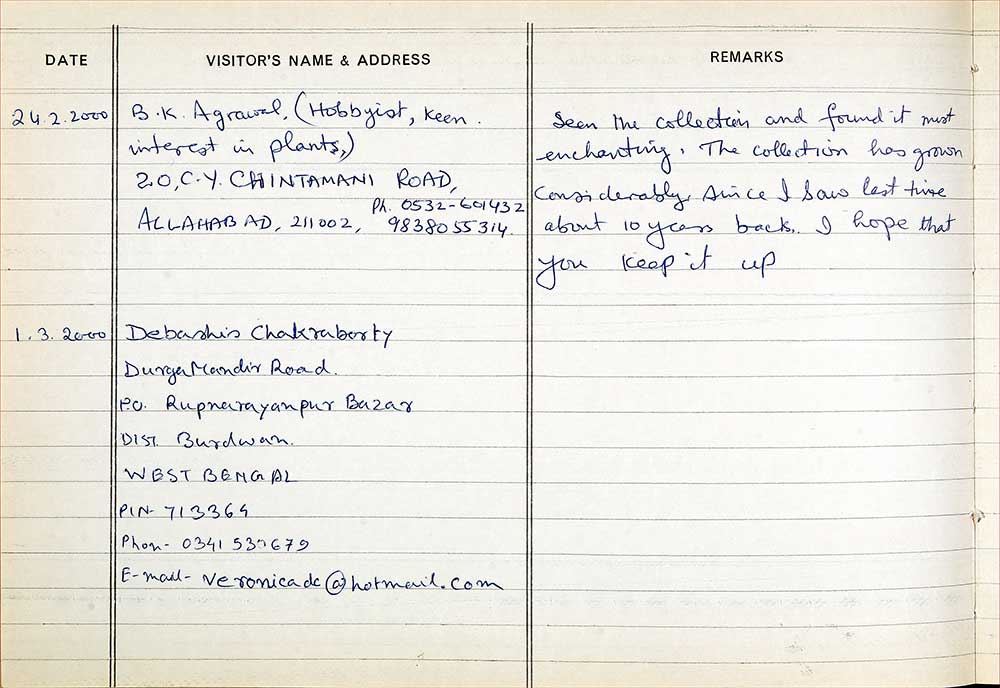 DATE
VISITOR'S NAME & ADDRESS
REMARKS
24.2.2000
B.K. Agrawal, (Hobbyist, keen.
interest in plants,)
20, C.Y. CHINTAMANI ROAD,
Ph. 0532-601432
ALLAHABAD, 211002, 9838055314.
Seen the collection and found it most
enchanting. The collection has grown
considerably, since I saw last time
about 10 years back. I hope that
you keep it up
1.3.2000
Debashis Chakraborty
Durga Mandir Road.
P.O. Rupnarayanpur Bazar
DIST. Burdwan.
WEST BENGAL
PIN- 713364
Phon- 0341
E-mail- veronicadc@hotmail.com